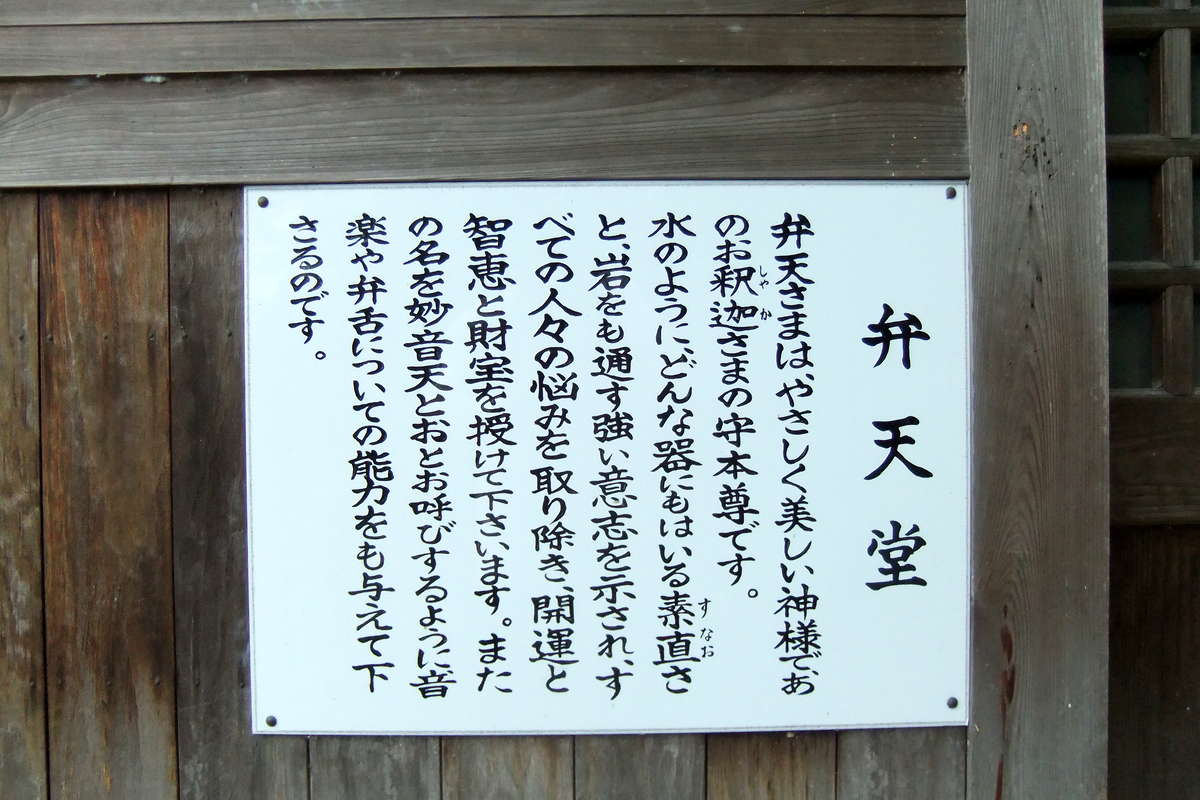 弁天堂
弁天さまは、やさしく美しい神様であ
のお釈迦さまの守本尊です。
水のように、どんな器にもはいる素直さ
と、岩をも通す強い意志を示され、す
べての人々の悩みを取り除き、開運と
智恵と財宝を授けて下さいます。また
の名を妙音天とおとお呼びするように音
楽や弁舌についての能力をも与えて下
さるのです。
しゃか
すなお